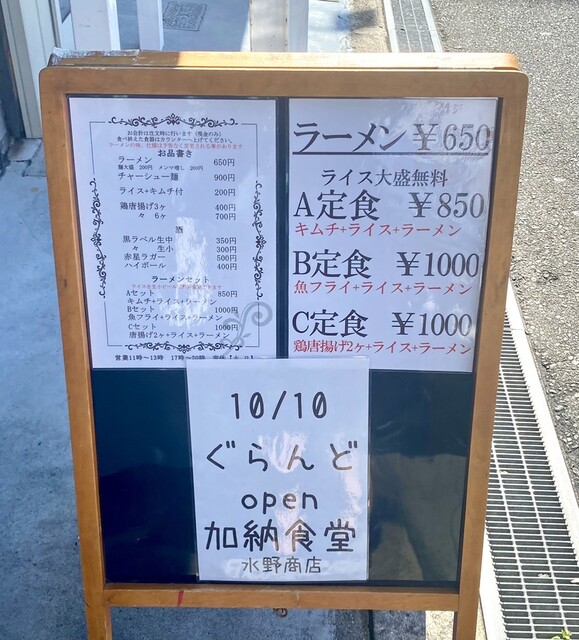 お会計は注文時に行います（現金のみ）
食べ終えた食器はカウンターへ上げてください。
ラーメンの味、仕様は予告なく変更される事があります
お品書き
ラーメン 650円
麺大盛 200円 メンマ増し 200円
チャーシュー麺 900円
ライス+キムチ付 200円
鶏唐揚げ3ヶ 400円
々 6ヶ 700円
酒
黒ラベル生中 350円
々 生小 300円
赤星ラガー 500円
ハイボール 400円
ラーメンセット
Aセット 850円
キムチ+ライス+ラーメン
Bセット 1000円
魚フライ+ライス+ラーメン
Cセット 1000円
唐揚げ2ヶ+ライス+ラーメン
営業11時〜13時 17時〜20時
ラーメン ￥650
ライス大盛無料
A定食 ￥850
キムチ+ライス+ラーメン
B定食 ￥1000
魚フライ+ライス+ラーメン
C定食 ￥1000
鶏唐揚げ2ヶ+ライス+ラーメン
10/10
ぐらんど
open
加納食堂
水野商店